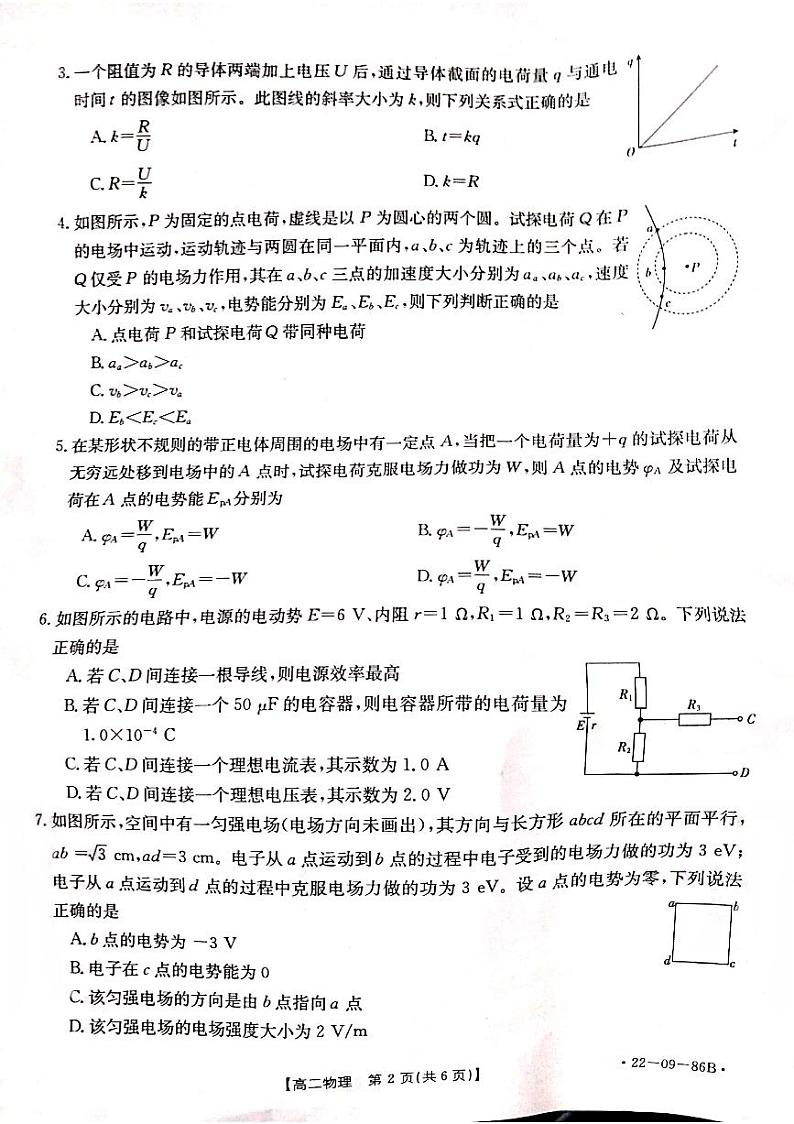 3. 一个阻值为 R 的导体两端加上电压 U 后,通过导体截面的电荷量 q 与通电
时间 t 的图像如图所示。此图线的斜率大小为 k,则下列关系式正确的是
A. k=R/U
B. t=kq
C. R=U/k
D. k=R
q
O
t
4. 如图所示,P 为固定的点电荷,虚线是以 P 为圆心的两个圆。试探电荷 Q 在 P
的电场中运动,运动轨迹与两圆在同一平面内,a、b、c 为轨迹上的三个点。若
Q 仅受 P 的电场力作用,其在 a、b、c 三点的加速度大小分别为 aₐ、a_b、a_c,速度
大小分别为 vₐ、v_b、v_c,电势能分别为 Eₐ、E_b、E_c,则下列判断正确的是
A. 点电荷 P 和试探电荷 Q 带同种电荷
B. aₐ>a_b>a_c
C. v_b>v_c>vₐ
D. E_b<E_c<Eₐ
a
b
P
c
5. 在某形状不规则的带正电体周围的电场中有一定点 A,当把一个电荷量为+q 的试探电荷从
无穷远处移到电场中的 A 点时,试探电荷克服电场力做功为 W,则 A 点的电势 φ_A 及试探电
荷在 A 点的电势能 E_pA 分别为
A. φ_A=W/q,E_pA=W
B. φ_A=-W/q,E_pA=W
C. φ_A=-W/q,E_pA=-W
D. φ_A=W/q,E_pA=-W
6. 如图所示的电路中,电源的电动势 E=6 V、内阻 r=1 Ω,R₁=1 Ω,R₂=R₃=2 Ω。下列说法
正确的是
A. 若 C、D 间连接一根导线,则电源效率最高
B. 若 C、D 间连接一个 50 μF 的电容器,则电容器所带的电荷量为
1.0×10⁻⁴ C
C. 若 C、D 间连接一个理想电流表,其示数为 1.0 A
D. 若 C、D 间连接一个理想电压表,其示数为 2.0 V
R₁
R₃
C
E r
R₂
D
7. 如图所示,空间中有一匀强电场(电场方向未画出),其方向与长方形 abcd 所在的平面平行,
ab =√3 cm,ad=3 cm。电子从 a 点运动到 b 点的过程中电子受到的电场力做的功为 3 eV;
电子从 a 点运动到 d 点的过程中克服电场力做的功为 3 eV。设 a 点的电势为零,下列说法
正确的是
A. b 点的电势为 -3 V
B. 电子在 c 点的电势能为 0
C. 该匀强电场的方向是由 b 点指向 a 点
D. 该匀强电场的电场强度大小为 2 V/m
a
b
d
c
【高二物理 第 2 页(共 6 页)】
·22-09-86B·